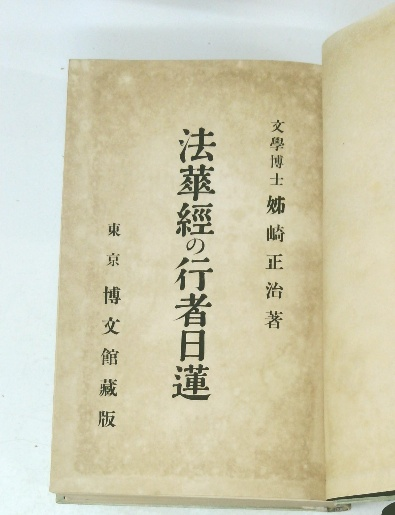 文學博士 姊崎正治著
法華經の行者日蓮
東京 博文館藏版